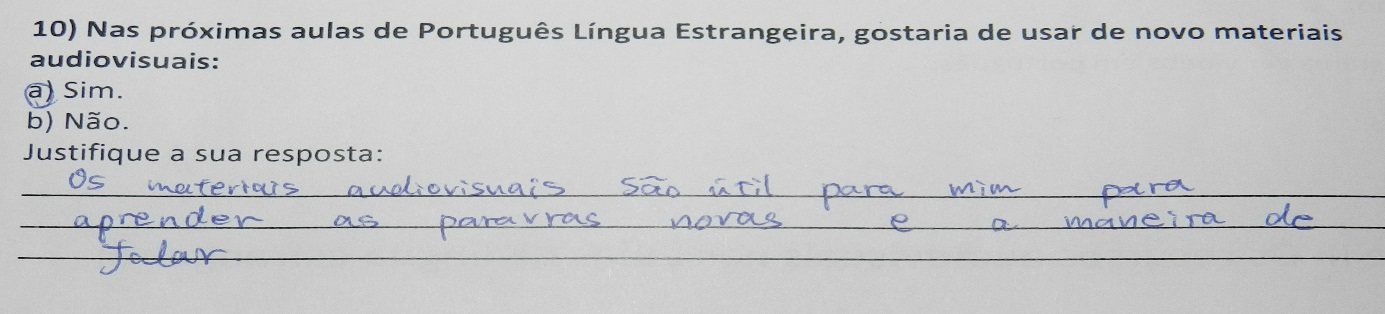 10) Nas próximas aulas de Português Língua Estrangeira, gostaria de usar de novo materiais
audiovisuais:
a) Sim.
b) Não.
Justifique a sua resposta:
Os materiais audiovisuais são útil para mim para
aprender as paravras novas e a maneira de
falar.